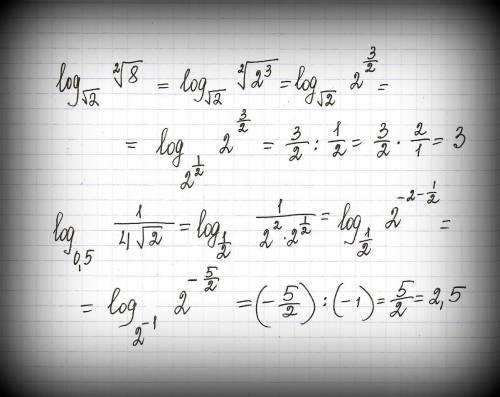 log_{√2} \sqrt[2]{8} = log_{√2} \sqrt[2]{2^3} = log_{√2} 2^{\frac{3}{2}} =
= log_{2^{\frac{1}{2}}} 2^{\frac{3}{2}} = \frac{3}{2} : \frac{1}{2} = \frac{3}{2} · \frac{2}{1} = 3
log_{0,5} \frac{1}{4√2} = log_{\frac{1}{2}} \frac{1}{2^2 · 2^{\frac{1}{2}}} = log_{\frac{1}{2}} 2^{-2-\frac{1}{2}} =
= log_{2^{-1}} 2^{-\frac{5}{2}} = (-\frac{5}{2}) : (-1) = \frac{5}{2} = 2,5